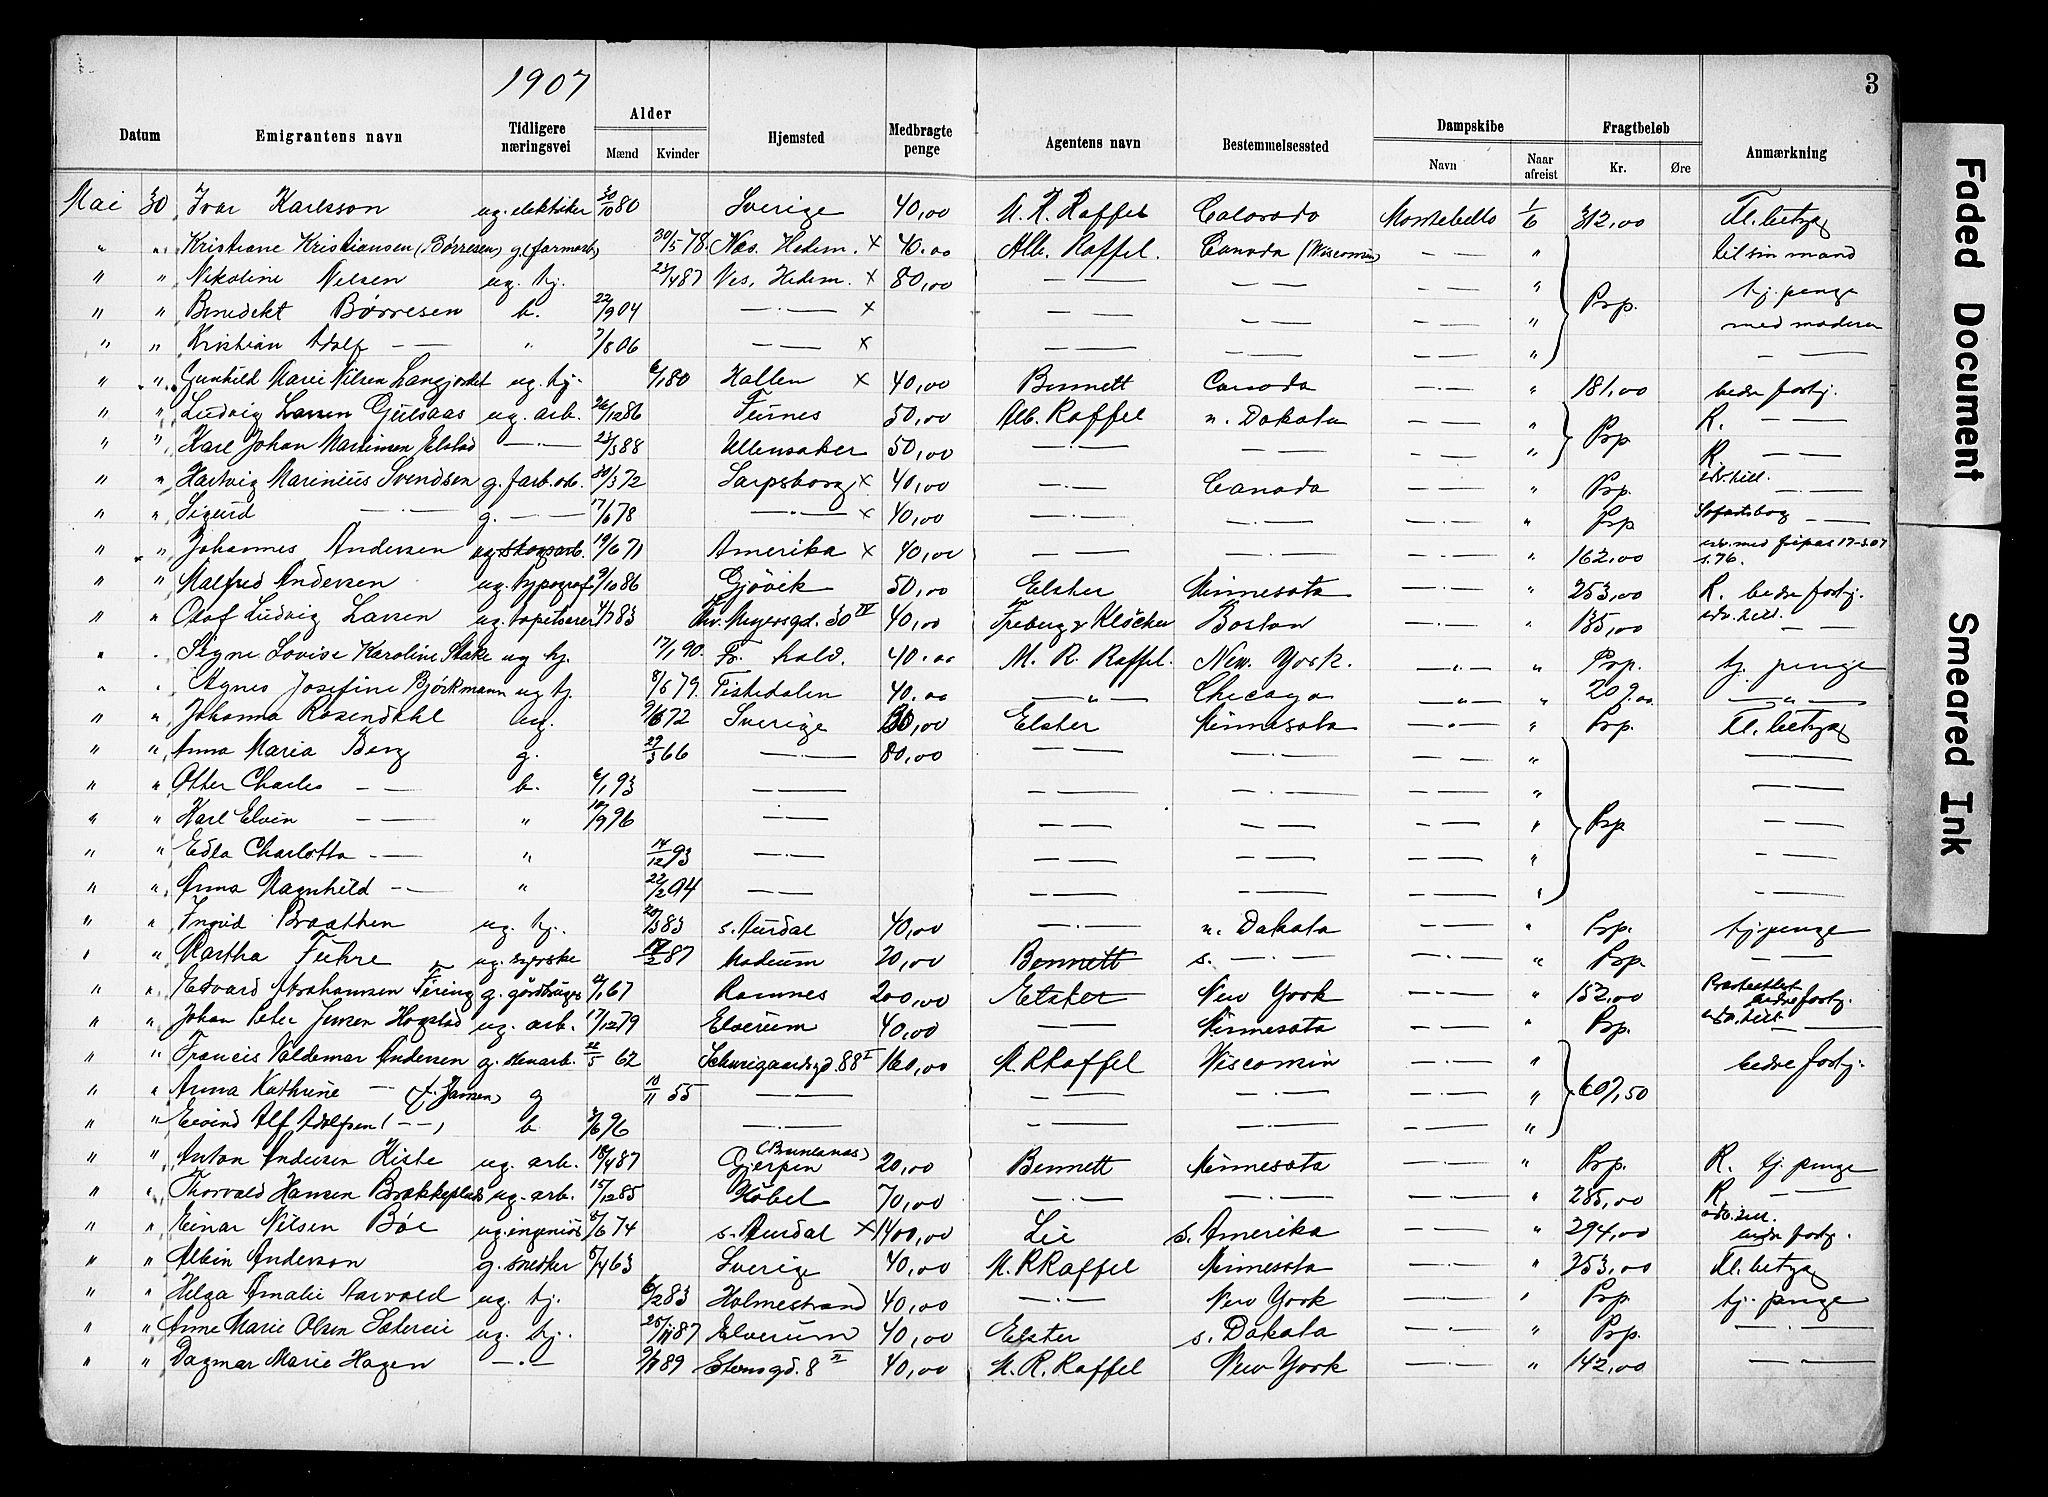 1907
3
Datum Emigrantens navn Tidligere næringsvei Alder Mænd Kvinder Hjemsted Medbragte penge Agentens navn Bestemmelsessted Dampskibe Navn Naar afreist Fragtbeløb Kr. Øre Anmærkning
Mai 30 Ivar Karlsson ug. elektriker 30/10 80 Sverige 40,00 M. R. Raffel Colorado Montebello 1/6 312,00 Fl. betyg
" " Kristiane Kristiansen (Børresen) g. (farmarb) 30/5 78 Nes, Hedem. x 40.00 Alb. Raffel. Canada (Wisconsin) — — " til sin mand
" " Nikoline Nelsen ug. tj. 23/4 87 Nes, Hedem. x 80,00 — — — — — — " tj. penge
" " Benedikt Børresen b. 22/9 04 — . — x — — — — — — " Prp. med moderen
" " Kristian Adolf — — " 7/8 06 — — x — — — — — — " — —
" " Gunhild Marie Nilsen Langjordet ug. tj. 6/1 80 Hallen x 40,00 Bennett Canada — . — " 181,00 bedre fortj.
" " Ludvig Larsen Gulsaas ug. arb. 26/12 86 Furnes 50,00 Alb. Raffel n. Dakota — — " R. — —
" " Karl Johan Martinsen Elstad — . — 23/3 88 Ullensaker 50,00 — . — — — — — " Prp R. — —
" " Hartvig Marinius Svendsen g. farb.arb. 30/3 72 Sarpsborg x 40,00 — . — Canada — — " Prp. — . —
" " Sigurd — . — g. — . — 17/6 78 — . — x 40,00 — . — — . — — . — " Prp — —
" " Johannes Andersen ug. skogsarb. 19/6 71 Amerika x 40,00 — — — . — — . — " 162,00 utv. med fripas 17-3.07 s. 76.
" " Malfred Andersen ug. typograf 9/10 86 Gjövik 50,00 Elster Minnesota — . — " 253,00 R. bedre fortj.
" " Olaf Ludvig Larsen ug. tapetserer 4/7 83 Thv. Meyersgd. 30 IV 40,00 Freberg & Klöcker Boston — . — " 135,00 — —
" " Signe Lovise Karoline Stake ug tj. 17/1 90. Fr. hald. 40.00 M. R. Raffel. New. York. — " — " Prp. tj. penge
" " Agnes Josefine Bjørkmann ug tj. 8/5 79. Tistedalen 40.00 — " — Chicago — " — " 209.00 — " —
" " Johanna Rosendahl ug. 9/6 72 Sverige 80,00 Elster Minnesota — . — " Prp. Fl. betyg
" " Anna Maria Berg g. 29/3 66 — . — 80,00 — — — . — — — " — —
" " Otter Charles — — b. 6/1 93 — — — — — . — — . — " — —
" " Karl Elvin — — " 10/9 96 — . — — — — — — — " Prp — . —
" " Edla Charlotta — . — " 14/12 93 — . — — — — — — . — " — . —
" " Anna Ragnhild — . — " 22/2 94 — — — — — — — — " — —
" " Ingrid Braathen ug. tj. 20/3 83 s. Aurdal 40,00 — . — n. Dakota — . — " Prp. tj. penge
" " Martha Fuhre ug. syerske 17/2 87 Modum 20,00 Bennett s. — . — — . — " Prp. — . —
" " Edvard Abrahamsen Føring g. gårdbruger 12/1 67 Ramnes 200,00 Elster New York — . — " 152,00 bedre fortj.
" " Johan Peter Jensen Hogstad ug. arb. 17/12 79 Elverum 40,00 — . — Minnesota — . — " Prp. — —
" " Francis Valdemar Andersen g. stenarb. 22/5 62 Schweigaardsgd. 88 I 160,00 M.R.Raffel Wisconsin — . — " bedre fortj.
" " Anna Kathrine — (f. Jansen) g 10/11 55 — — — . — — . — — . — " 607,50
" " Eivind Alf Adolfsen ( — — ) b 3/6 96 — . — — . — — . — — — "
" " Anton Andersen Histe ug. arb. 18/4 87 Gjerpen (Brunlanæs) 20,00 Bennett Minnesota — . — " Prp. R. tj. penge
" " Thorvald Hansen Brakkeplads ug. arb. 15/12 85 Hobel 70,00 — . — — . — — . — " 285,00 R. — —
" " Einar Nilsen Bøe ug. ingeniør 8/6 74 s. Aurdal x 1400,00 Lie s. Amerika — . — " 294,00 bedre fortj.
" " Albin Anderson g. snedker 5/4 63 Sverige 40,00 M.R.Raffel Minnesota — . — " 253,00 Fl. betyg
" " Helga Amalie Aarvold ug. tj. 6/2 83 Holmestrand 40,00 — . — New York — . — " Prp. tj. penge
" " Anne Marie Olsen Sætereie ug. tj. 25/11 87 Elverum 40,00 Elster s. Dakota — . — " Prp. — . —
" " Dagmar Marie Hagen — . — 9/7 89 Stensgd. 8 II 40,00 M. R. Raffel New York — . — " 142,00 — —
Faded Document
Smeared Ink